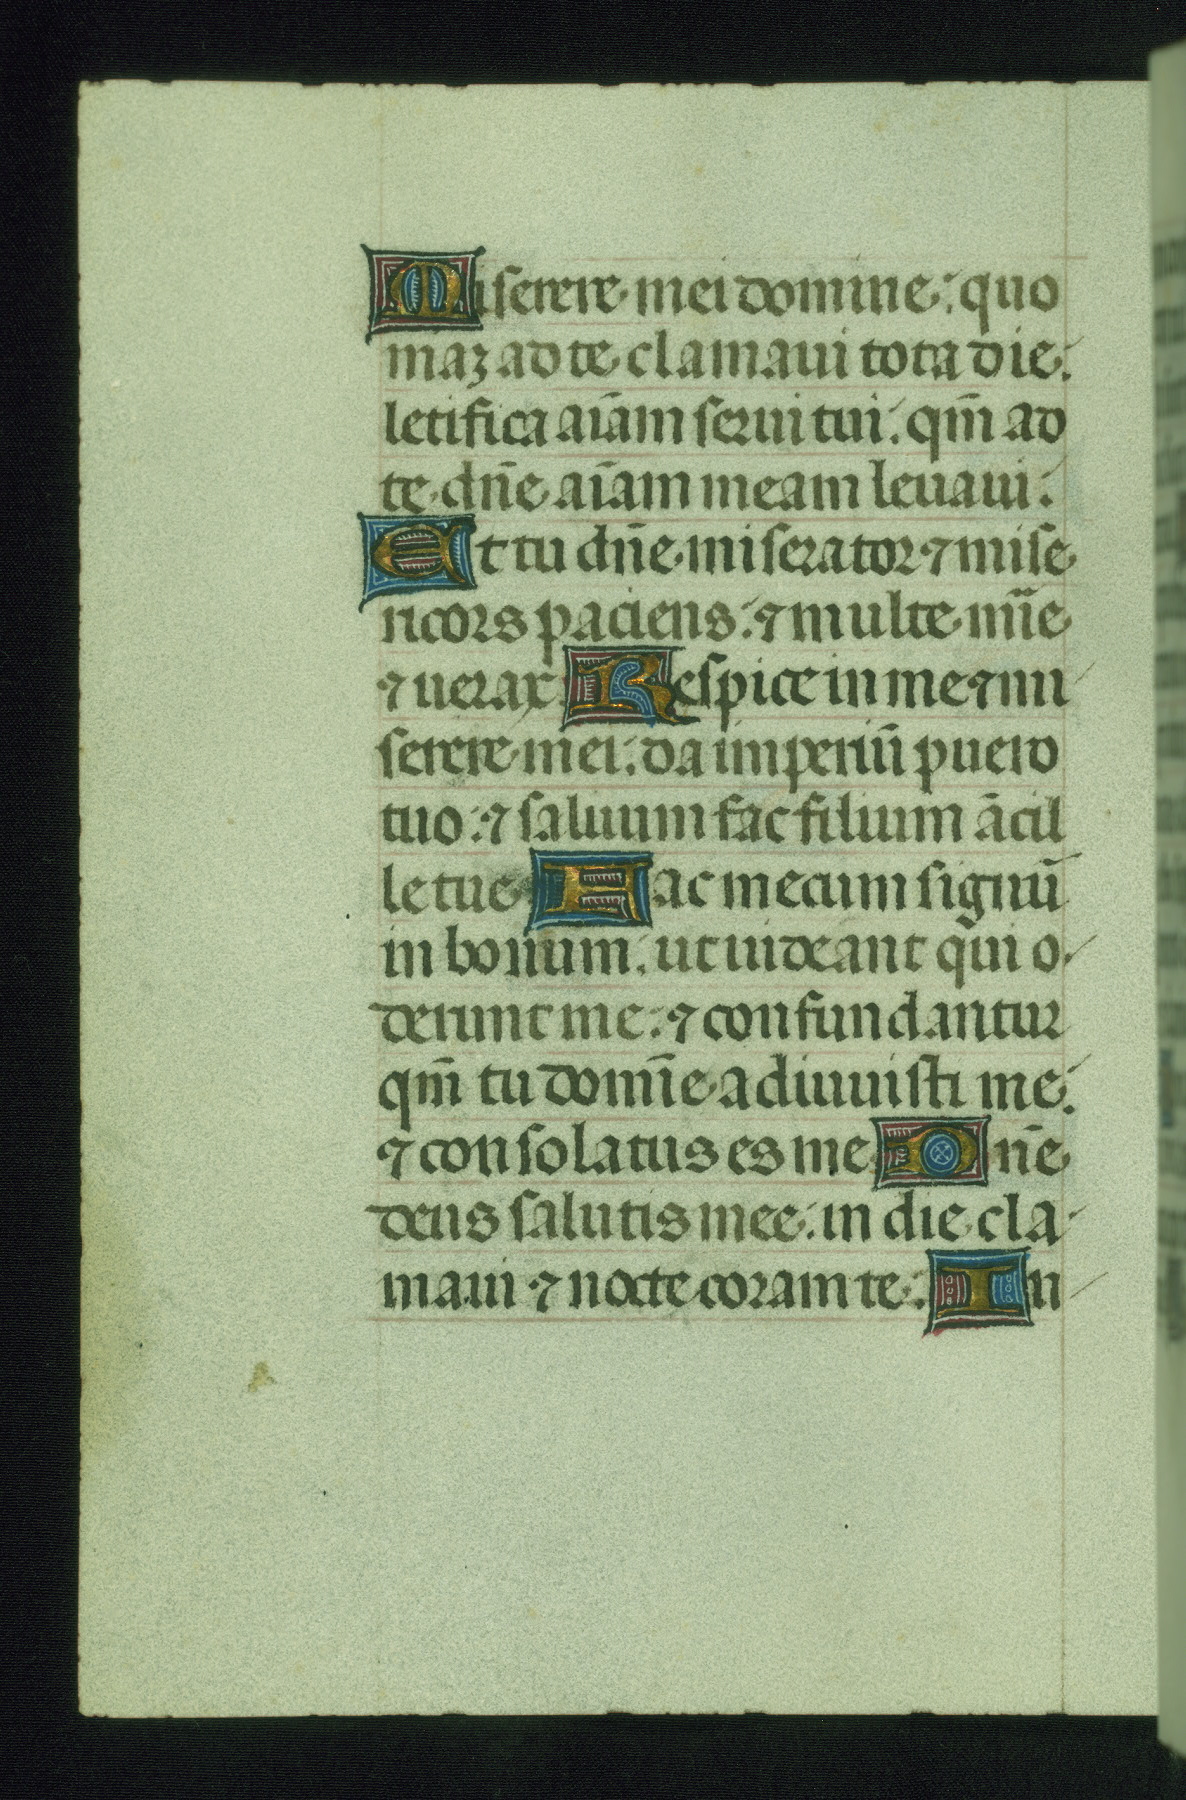 Miserere mei domine: quo
maꝫ ad te clamaui tota die:
letifica aīam serui tui: qm̄ ad
te dn̄e aīam meam leuaui:
Et tu dn̄e miserator ⁊ mise
ricors paciens: ⁊ multe mīe
⁊ uerax: Respice in me ⁊ mi
serere mei: da imperiū puero
tuo: ⁊ saluum fac filium ācil
le tue: Fac mecum signū
in bonum: ut uideant qui o
derunt me: ⁊ confundantur
qm̄ tu domīe adiuuisti me:
⁊ consolatus es me: Dn̄e
deus salutis mee: in die cla
maui ⁊ nocte coram te: In